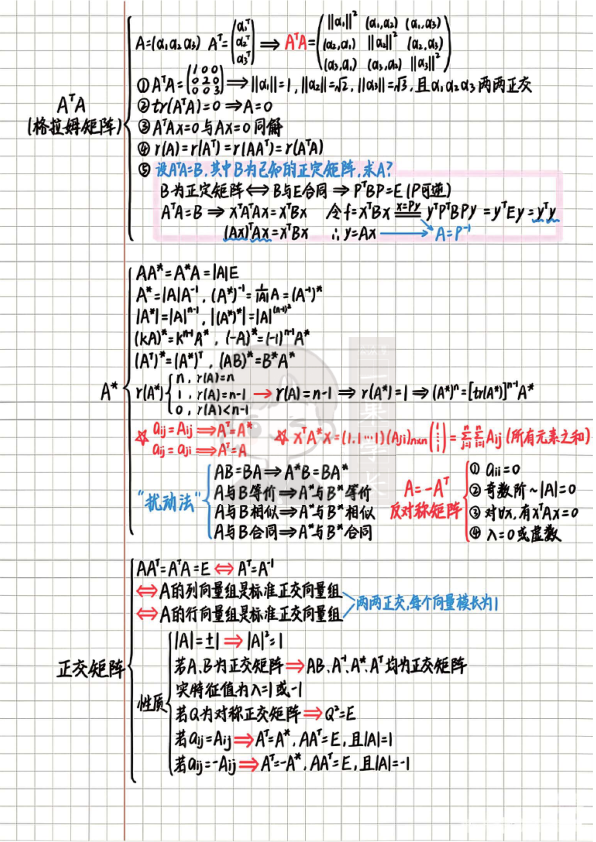 A^TA
(格拉姆矩阵)
A=(α₁ α₂ α₃) A^T=(α₁^T α₂^T α₃^T) ⇒ A^TA=(||α₁||² (α₁,α₂) (α₁,α₃)
(α₂,α₁) ||α₂||² (α₂,α₃)
(α₃,α₁) (α₃,α₂) ||α₃||²)
① A^TA=(1 0 0 0 2 0 0 0 3) ⇒ ||α₁||=1, ||α₂||=√2, ||α₃||=√3, 且α₁α₂α₃两两正交
② tr(A^TA)=0 ⇒ A=0
③ A^TAx=0与Ax=0同解
④ r(A)=r(A^T)=r(AA^T)=r(A^TA)
⑤ 设A^TA=B,其中B为已知的正定矩阵,求A?
B为正定矩阵 ⇔ B与E合同 ⇒ P^TBP=E (P可逆)
A^TA=B ⇒ x^TA^TAx=x^TBx 令f=x^TBx x=Py y^TP^TBPy=y^TEy=y^Ty
(Ax)^TAx=x^TBx ∴y=Ax → A=P^-1
A*
AA*=A*A=|A|E
A*=|A|A^-1, (A*)^-1=1/|A| A=(A^-1)*
|A*|=|A|^(n-1), |(A*)*|=|A|^(n-1)²
(kA)*=k^(n-1)A*, (-A)*=(-1)^(n-1)A*
(A^T)*=(A*)^T, (AB)*=B*A*
r(A*){ n, r(A)=n
1, r(A)=n-1 → r(A)=n-1 ⇒ r(A*)=1 ⇒ (A*)^n=[tr(A*)]^(n-1)A*
0, r(A)<n-1
☆ aij=Aij ⇒ A^T=A*
aij=aji ⇒ A^T=A
☆ x^TA*x=(1,1⋯1)(Aji)n×n(1 1 ⋮ 1)=∑∑Aij (所有元素之和)
"扰动法"
AB=BA ⇒ A*B=BA*
A与B等价 ⇒ A*与B*等价
A与B相似 ⇒ A*与B*相似
A与B合同 ⇒ A*与B*合同
A=-A^T
反对称矩阵
① aii=0
② 奇数阶~|A|=0
③ 对∀x,有x^TAx=0
④ λ=0或虚数
正交矩阵
AA^T=A^TA=E ⇔ A^T=A^-1
⇔ A的列向量组是标准正交向量组
⇔ A的行向量组是标准正交向量组
两两正交,每个向量模长为1
性质
|A|=±1 ⇒ |A|²=1
若A、B为正交矩阵 ⇒ AB、A^-1、A*、A^T均为正交矩阵
实特征值为λ=1或-1
若Q为对称正交矩阵 ⇒ Q²=E
若aij=Aij ⇒ A^T=A*, AA^T=E, 且|A|=1
若aij=-Aij ⇒ A^T=-A*, AA^T=E, 且|A|=-1